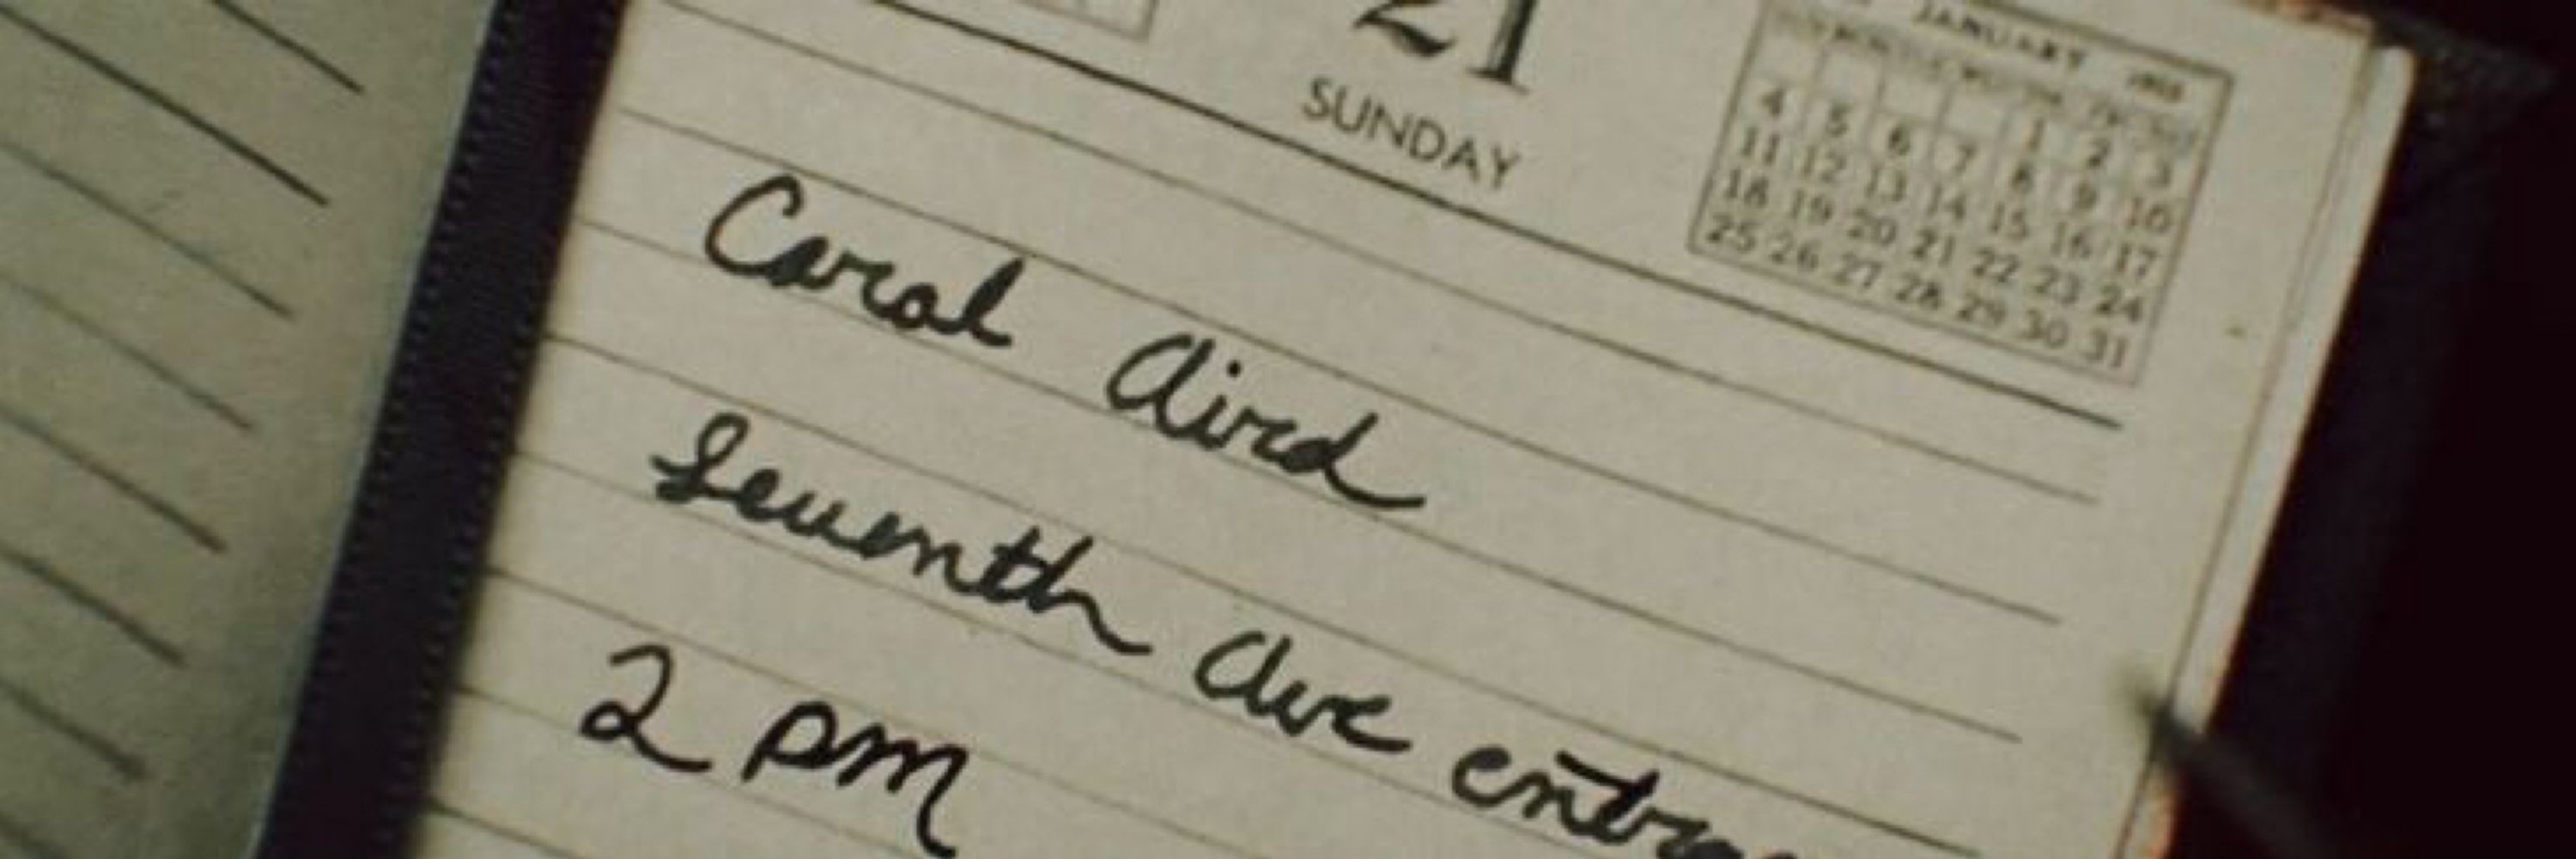 21
SUNDAY
JANUARY
1 2 3
4 5 6 7 8 9 10
11 12 13 14 15 16 17
18 19 20 21 22 23 24
25 26 27 28 29 30 31
Carol Aird
Seventh Ave
2 pm